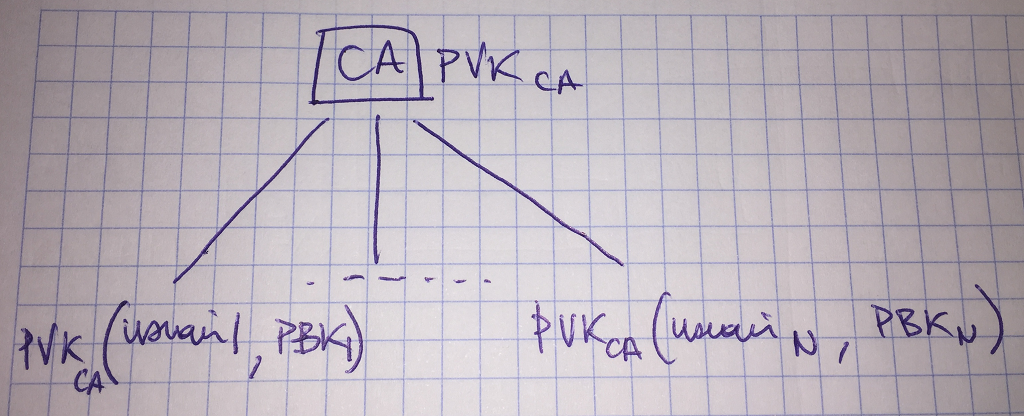 CA PVK CA
PVK CA (usuari 1, PBK1) PVK CA (usuari N, PBK N)